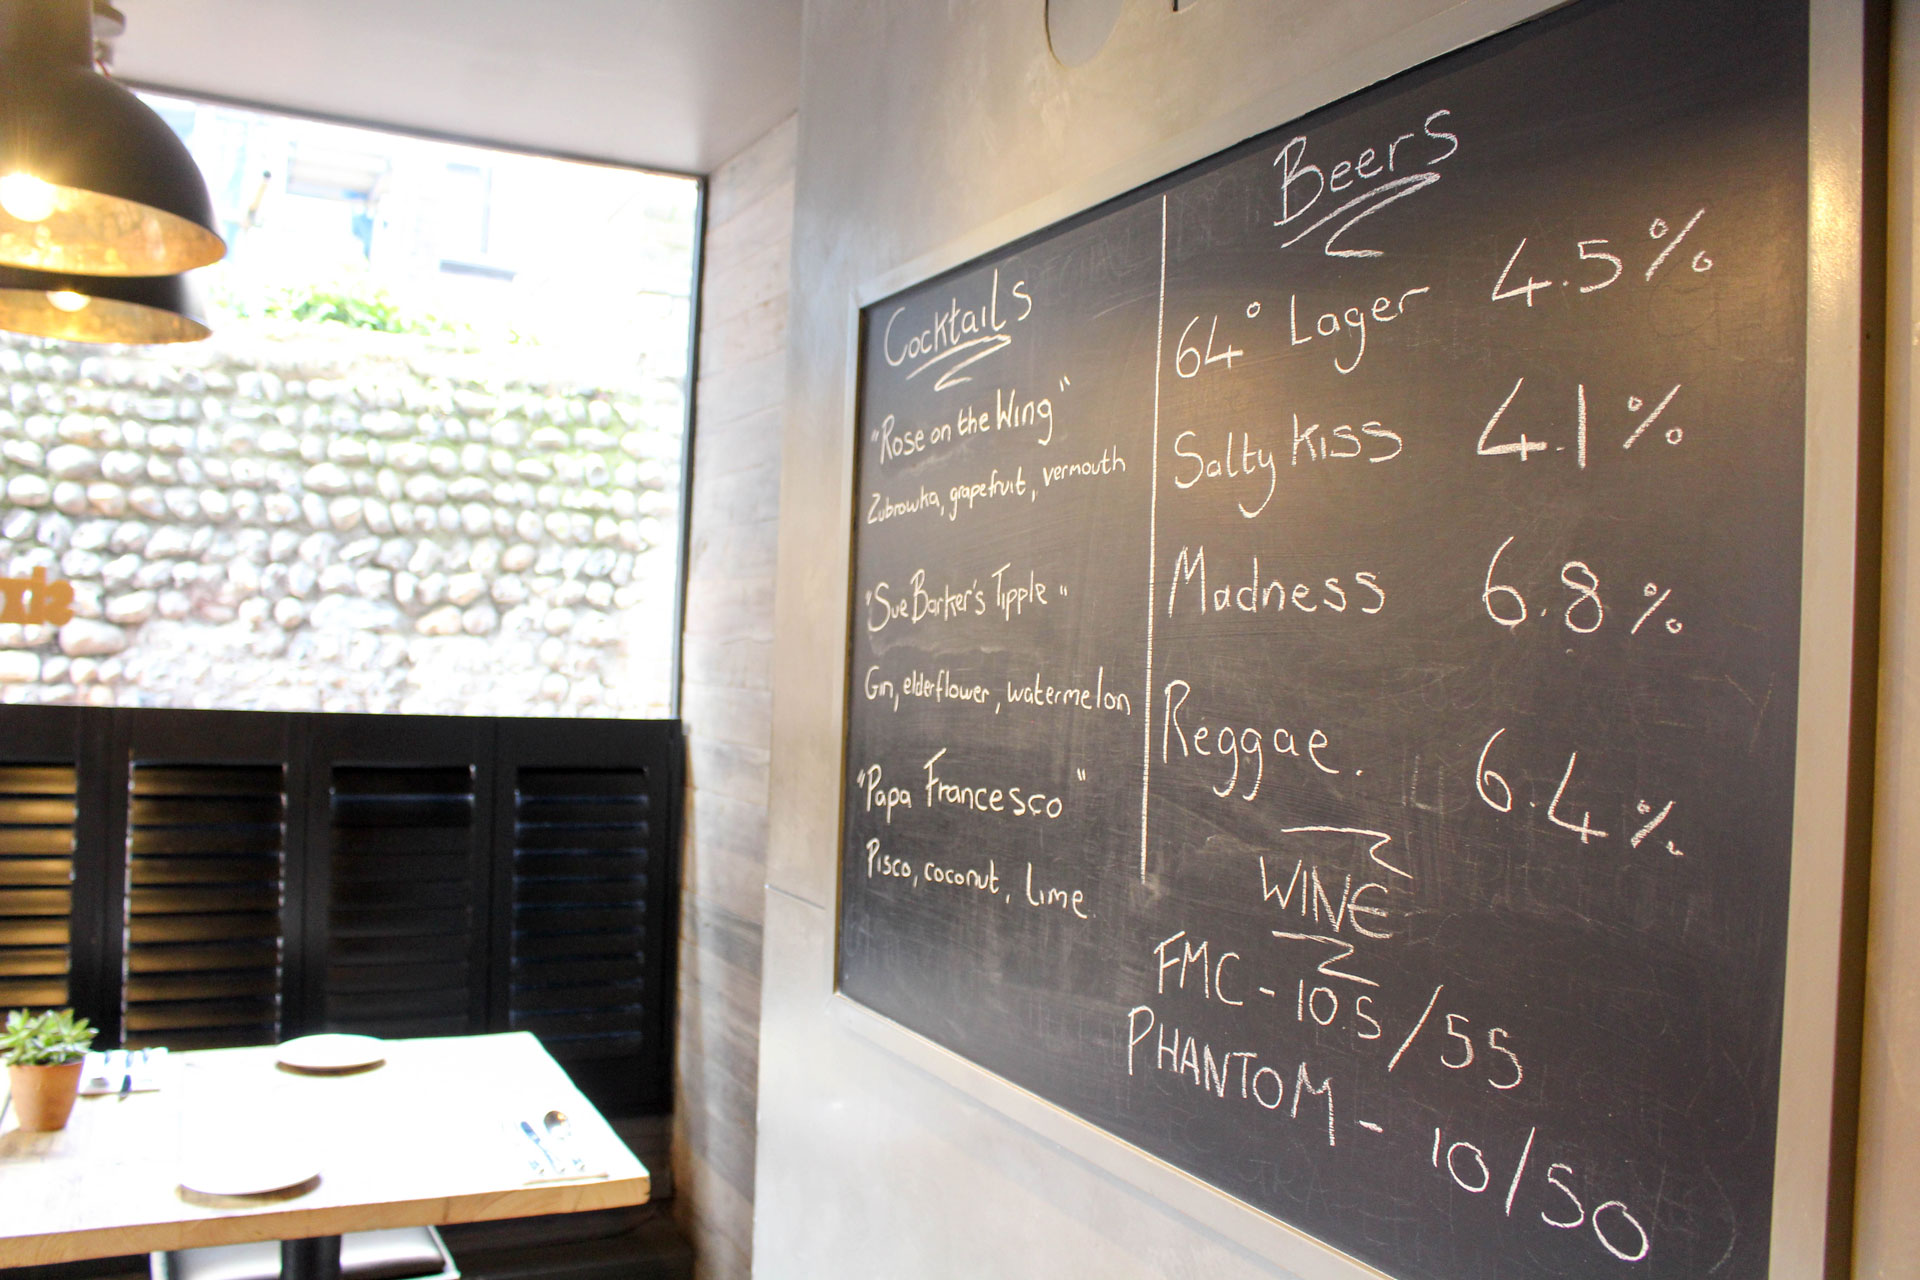 Cocktails
"Rose on the Wing"
Zubrowka, grapefruit, vermouth
"Sue Barker's Tipple"
Gin, elderflower, watermelon
"Papa Francesco"
Pisco, coconut, lime.
Beers
64° Lager 4.5%
Salty Kiss 4.1%
Madness 6.8%
Reggae. 6.4%
WINE
FMC - 10.5/55
PHANTOM - 10/50